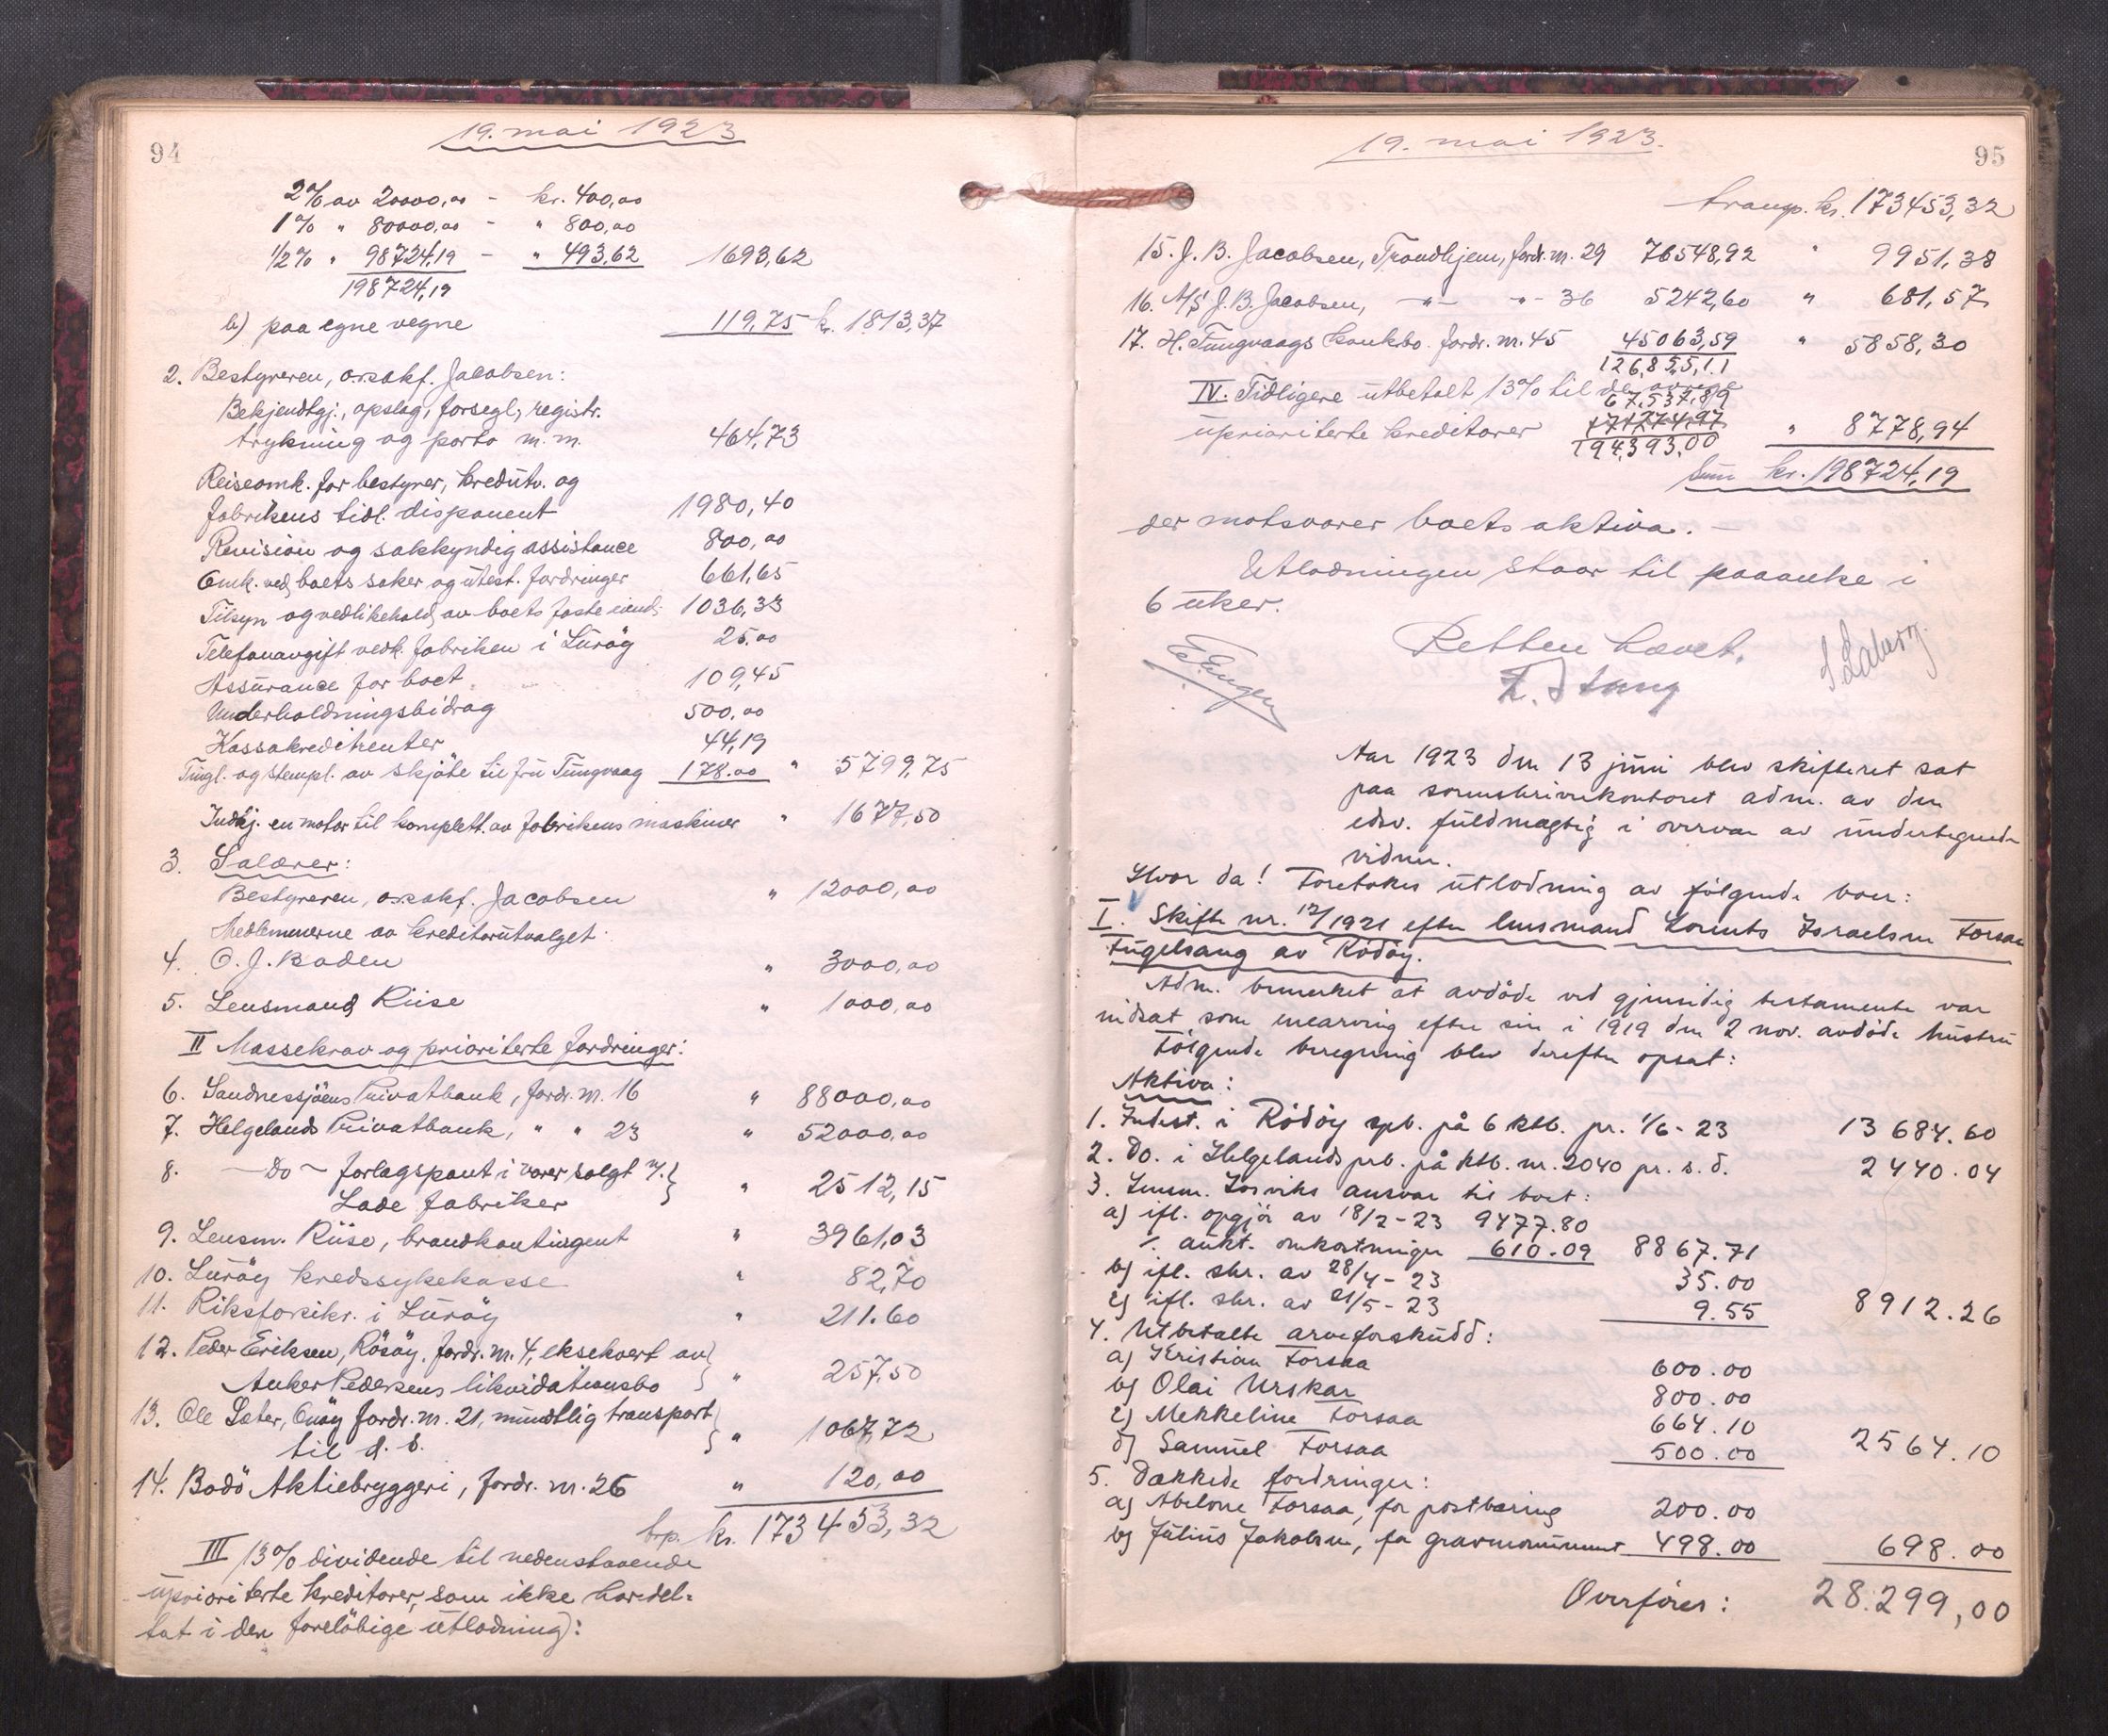 94
19. mai 1923
2% av 20000,00 - kr. 400,00
1% " 80000,00 - " 800,00
1/2% " 98724,19 - " 493,62 1693,62
198724,19
b) paa egne vegne 119,75 k. 1813,37
2. Bestyreren, o.r.sakf. Jacobsen:
Bekjendtgj., opslag, forsegl., registr.
trykning og porto m.m. 464,73
Reiseomk. for bestyrer, kreditv. og
fabrikens tidl. disponent 1980,40
Revision og sakkyndig assistance 800,00
Omk. ved boets saker og utest. fordringer 661,65
Tilsyn og vedlikehold av boets faste eiend. 1036,33
Telefonavgift vedk. fabriken i Luröy 25.00
Assurance for boet 109,45
Underholdningsbidrag 500,00
Kassakreditrenter 44,19
Tingl. og stempl. av skjöte til fru Tungvaag 178.00 " 5799,75
Indkj. en motor til komplett. av fabrikens maskiner " 1677,50
3. Salærer:
Bestyreren, o.r.sakf. Jacobsen " 12000,00
Medlemmerne av kreditorutvalget:
4. O. J. Boden " 3000,00
5. Lensmand Riise " 1000,00
II Massekrav og prioriterte fordringer:
6. Sandnessjöens Privatbank, fordr. nr. 16 " 88000,00
7. Helgelands Privatbank, " " 23 " 52000,00
8. - Do - forlagspant i varer solgt t/.
Lade fabriker " 2512,15
9. Lensm. Riise, brandkontingent " 3961,03
10. Luröy kredssykekasse " 82,70
11. Riksforsikr. i Luröy " 211.60
12. Peder Eriksen, Rösöy, fordr. nr. 4, eksekvert av
Anker Pedersens likvidationsbo " 257,50
13. Ole Sæter, Onöy fordr. nr. 21, mundtlig transport
til d. s. " 1067,72
14. Bodö Aktiebryggeri, fordr. nr. 26 " 120,00
trp. kr. 173453,32
III 13% dividende til nedenstaaende
uprioriterte kreditorer, som ikke har del-
tat i den foreløbige utlodning):
19. mai 1923.
95
transp. kr. 173453,32
15. J. B. Jacobsen, Trondhjem, fordr. nr. 29 76548,92 " 9951,38
16. M/S J. B. Jacobsen, -"- "- 36 5242,60 " 681,57
17. H. Tungvaags konkbo. fordr. nr. 45 45063,59 " 5858,30
126,855,11
IV. Tidligere utbetalt 13% til de øvrige
67,537,89
uprioriterte kreditorer 171774,97 " 8778,94
194,393,00
Sum kr. 198724,19
der motsvarer boets aktiva. -
Utlodningen staar til paaanke i
6 uker.
Retten hævet.
Aar 1923 den 13 juni blev skifteret sat
paa sorenskriverkontoret adm. av den
edsv. fuldmægtig i overvær av undertegnede
vidner.
Hvor da! Foretokes utlodning av følgende boer:
I. Skifte nr. 12/1921 efter lensmand Lorents Israelsen Forsaa
Fuglesang av Rödöy.
Adm. bemerket at avdöde ved gjensidig testamente var
indsat som enearving efter sin i 1919 den 2 nov. avdöde hustru
Fölgende beregning blev derefter opsat:
Aktiva:
1. Indest. i Rödöy spb. på 6 ktb. pr. 1/6-23 13684.60
2. Do. i Helgelands prb. på ktb. nr. 2040 pr. s. d. 2440.04
3. Lensm. ansvar til boet:
a) ifl. opgjör av 18/2-23 9477.80
÷ aukt. omkostninger 610.09 8867.71
b) ifl. skr. av 28/4-23 35.00
c) ifl. skr. av 21/5-23 9.55 8912.26
4. Utbetalte arveforskudd:
a) Kristian Forsaa 600.00
b) Olai Urskar 800.00
c) Mekkeline Forsaa 664.10
d) Samuel Forsaa 500.00 2564.10
5. Dækkede fordringer:
a) Abelone Forsaa, for postbæring 200.00
b) Julius Jakobsen, for gravmonument 498.00 698.00
Overføres: 28.299,00